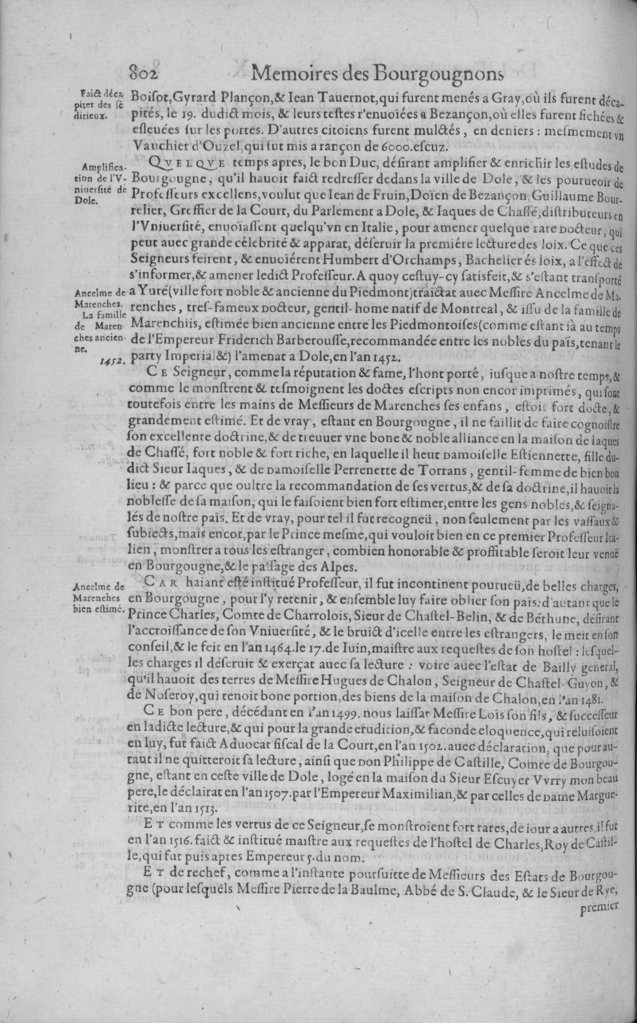 802 Memoires des Bourgougnons
Faict déca
piter des sé
ditieux.
Boisot, Gyrard Plançon, & Iean Tauernot, qui furent menés a Gray, où ils furent déca-
pités, le 19. dudict mois, & leurs testes r'enuoiées a Bezançon, où elles furent fichées &
esleuées sur les portes. D'autres citoiens furent mulctés, en deniers : mesmement vn
Vauchier d'Ouzel, qui fut mis a rançon de 6000. escuz.
Amplifica-
tion de l'V-
niuersité de
Dole.
QVELQVE temps apres, le bon Duc, désirant amplifier & enrichir les estudes de
Bourgougne, qu'il hauoit faict redresser dedans la ville de Dole, & les pourueoir de
Professeurs excellens, voulut que Iean de Fruin, Doïen de Bezançon, Guillaume Bour-
relier, Greffier de la Court, du Parlement a Dole, & Iaques de Chassé, distributeurs en
l'Vniuersité, enuoïassent quelqu'vn en Italie, pour amener quelque rare Docteur, qui
peut auec grande célebrité & apparat, déseruir la premiére lecture des loix. Ce que ces
Seigneurs feirent, & enuoiérent Humbert d'Orchamps, Bachelier és loix, a l'effect de
s'informer, & amener ledict Professeur. A quoy cestuy-cy satisfeit, & s'estant transporté
Ancelme de
Marenches.
La famille
de Maren-
ches ancien-
ne.
1452.
a Yuré (ville fort noble & ancienne du Piedmont) traictat auec Messire Ancelme de Ma-
renches, tres-fameux Docteur, gentil-home natif de Montreal, & issu de la famille de
Marenchiis, estimée bien ancienne entre les Piedmontoises (comme estant ià au temps
de l'Empereur Friderich Barberousse, recommandée entre les nobles du païs, tenant le
party Imperial &) l'amenat a Dole, en l'an 1452.
CE Seigneur, comme la réputation & fame, l'hont porté, iusque a nostre temps, &
comme le monstrent & tesmoignent les doctes escripts non encor imprimés, qui sont
toutefois entre les mains de Messieurs de Marenches ses enfans, estoit fort docte, &
grandement estimé. Et de vray, estant en Bourgougne, il ne faillit de faire cognoistre
son excellente doctrine, & de treuuer vne bone & noble alliance en la maison de Iaques
de Chassé, fort noble & fort riche, en laquelle il heut Damoiselle Estiennette, fille du-
dict Sieur Iaques, & de Damoiselle Perrenette de Torrans, gentil-femme de bien bon
lieu : & parce que oultre la recommandation de ses vertus, & de sa doctrine, il hauoit la
noblesse de sa maison, qui le faisoient bien fort estimer, entre les gens nobles, & seigna-
lés de nostre païs. Et de vray, pour tel il fut recogneü, non seulement par les vassaux &
subiects, mais encor, par le Prince mesme, qui vouloit bien en ce premier Professeur Ita-
lien, monstrer a tous les estranger, combien honorable & proffitable seroit leur venuë
en Bourgougne, & le passage des Alpes.
Ancelme de
Marenches
bien estimé.
CAR haiant esté institué Professeur, il fut incontinent pourueü, de belles charges,
en Bourgougne, pour l'y retenir, & ensemble luy faire oblier son païs: d'autant que le
Prince Charles, Comte de Charrolois, Sieur de Chastel-Belin, & de Béthune, désirant
l'accroissance de son Vniuersité, & le bruict d'icelle entre les estrangers, le meit en son
conseil, & le feit en l'an 1464. le 17. de Iuin, maistre aux requestes de son hostel : lesquel-
les charges il déseruit & exerçat auec sa lecture : voire auec l'estat de Bailly general,
qu'il hauoit des terres de Messire Hugues de Chalon, Seigneur de Chastel-Guyon, &
de Noseroy, qui tenoit bone portion, des biens de la maison de Chalon, en l'an 1481.
CE bon pere, décédant en l'an 1499. nous laissat Messire Loïs son fils, & successeur
en ladicte lecture, & qui pour la grande erudition, & faconde eloquence, qui reluisoient
en luy, fut faict Aduocat fiscal de la Court, en l'an 1502. auec déclaration, que pour au-
tant il ne quitteroit sa lecture, ainsi que Don Philippe de Castille, Comte de Bourgou-
gne, estant en ceste ville de Dole, logé en la maison du Sieur Escuyer Vvrry mon beau
pere, le déclairat en l'an 1507. par l'Empereur Maximilian, & par celles de Dame Margue-
rite, en l'an 1513.
ET comme les vertus de ce Seigneur, se monstroient fort rares, de iour a autres, il fut
en l'an 1516. faict & institué maistre aux requestes de l'hostel de Charles, Roy de Castil-
le, qui fut puis apres Empereur 5. du nom.
ET de rechef, comme a l'instante poursuitte de Messieurs des Estats de Bourgou-
gne (pour lesquéls Messire Pierre de la Baulme, Abbé de S. Claude, & le Sieur de Rye,
premier